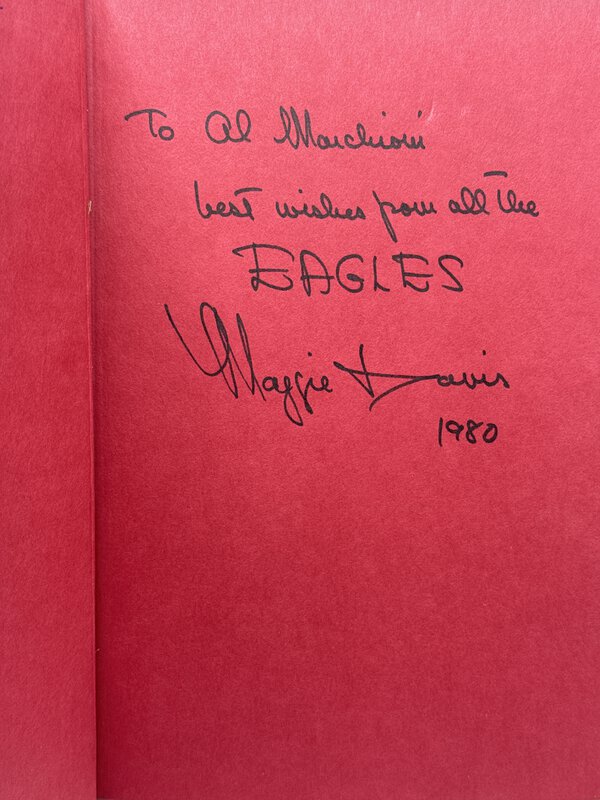 To Al Marchioni
best wishes from all the
EAGLES
Maggie Davis
1980